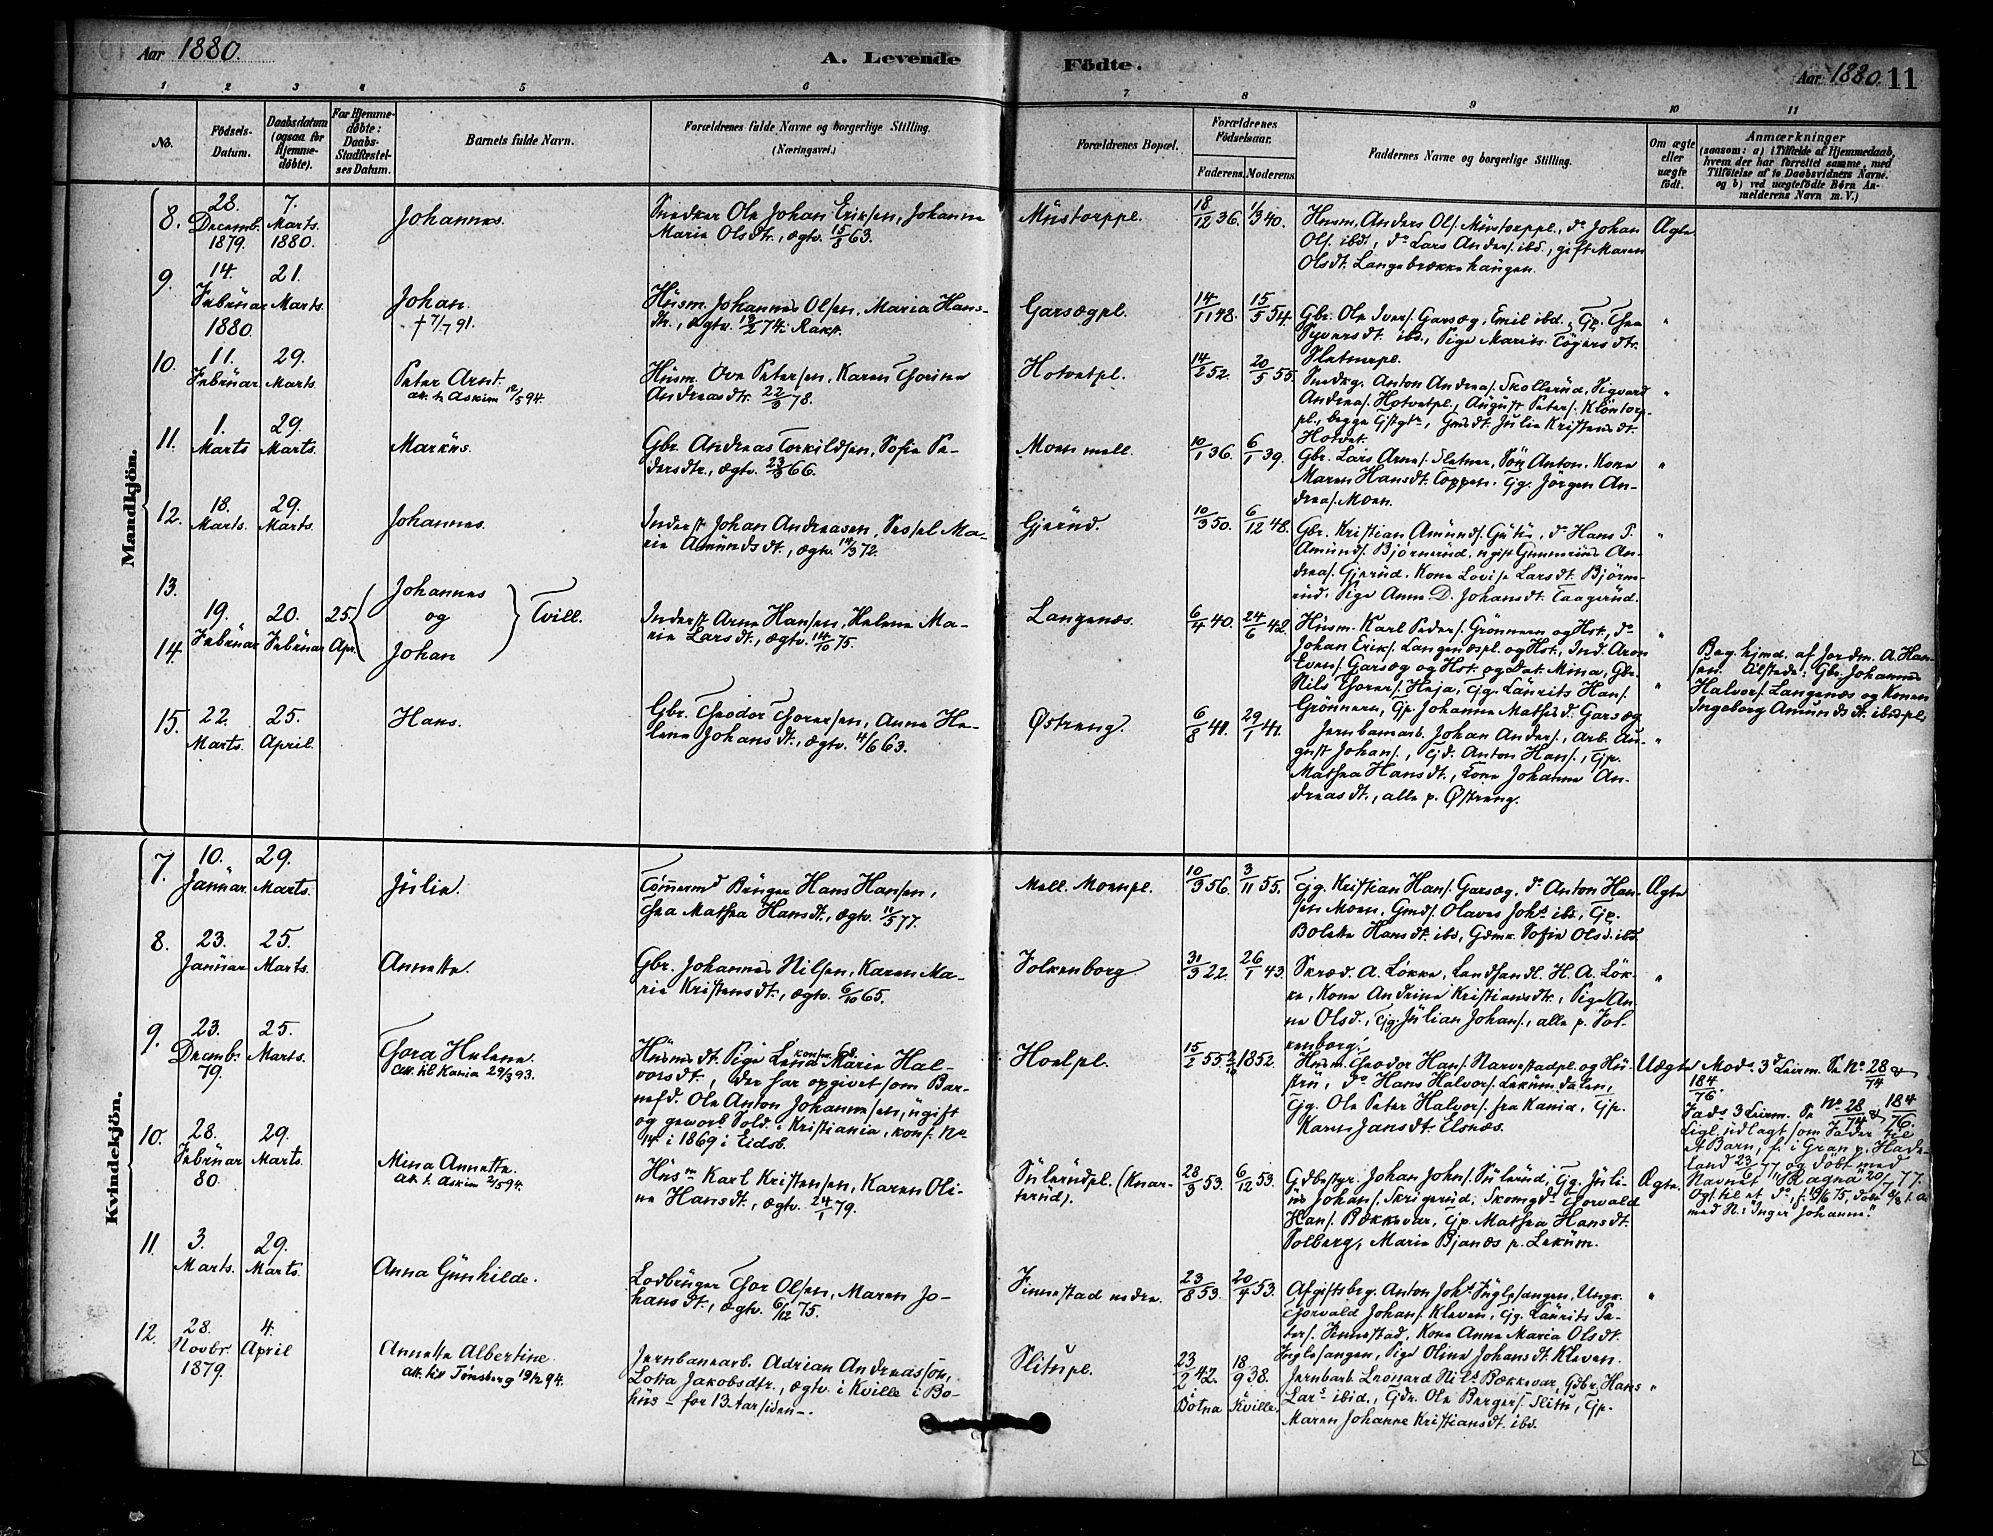 Aar 1880.
A. Levende
Födte.
Aar 1880. 11
1 2 3 4 5 6 7 8 9 10 11
No.
Födsels-
Datum.
Daabsdatum
(ogsaa for
Hjemme-
døbte).
For Hjemme-
døbte:
Daabs-
Stadfæstel-
ses Datum.
Barnets fulde Navn.
Forældrenes fulde Navne og borgerlige Stilling.
(Næringsvei.)
Forældrenes Bopæl.
Forældrenes
Födselsaar.
Faderens. Moderens.
Faddernes Navne og borgerlige Stilling.
Om ægte
eller
uægte
födt.
Anmærkninger
(saasom: a) i Tilfælde af Hjemmedaab,
hvem der har forrettet samme, med
Tilföielse af to Daabsvidners Navne.
og b) ved uægtefödte Børn An-
melderens Navn m. V.)
Mandkjön.
8.
28.
Decemb.
1879.
7.
Marts.
1880.
Johannes.
Snedker Ole Johan Eriksen, Johanne
Marie Olsdtr., ægtv. 15/5 63.
Müstorppl.
18/12 36.
1/3 40.
Husm. Anders Ols. Müstorppl., do Johan
Ols. ibd., do Lars Anders. ibd., gift Maren
Olsdt. Langebrækkehaugen.
Ægte
9.
14.
Februar
1880.
21.
Marts.
Johan.
† 7/7 91.
Husm. Johannes Olsen, Maria Hans-
dtr., ægtv. 74. Rakst.
Garsægpl.
14/11 48.
15/5 54.
Gbr. Ole Ivers. Garsæg, Emil ibd., Gp. Thea
Syversdt. ibd., Pige Marits Tögersdtr.
Sletnerpl.
"
10.
11.
Februar
29.
Marts.
Peter Arnt.
att. t. Askim 12/5 94.
Husm. Ove Petersen, Karen Thorine
Andreasdtr. 22/3 78.
Hotvetpl.
14/2 52.
20/5 55.
Snedkg. Anton Andreas. Skollerud, Sigvard
Andreas. Hotvetpl., August Peters. Klöntorp-
pl., begge, Gmdt. Julie Kristensdt.
Hotvet.
"
11.
1.
Marts
29.
Marts.
Markus.
Gbr. Andreas Torkildsen, Sofie Pe-
dersdtr., ægtv. 23/3 66.
Moen mell.
10/1 36.
6/1 39.
Gbr. Lars Arnes. Sletner, Søn Anton, Kone
Maren Hansdt. Toppen. Gg. Jörgen An-
dreas. Moen.
"
12.
18.
Marts.
29.
Marts.
Johannes.
Inderst Johan Andreasen, Sessel Ma-
rie Amundsdt., ægtv. 14/3 72.
Gjerud.
10/3 50.
6/12 48.
Gbr. Kristian Amunds. Gutu, do Hans P.
Amunds. Bjørnerud, ugift Gunnerius An-
dreas. Gjerud. Kone Lovise Larsdt. Björne-
rud. Pige Anne D. Johansdt. Taagerud.
"
13.
14.
19.
Februar
20.
Februar
25.
Apr.
Johannes
og
Johan
Tvill.
Inderst Arne Hansen, Helene Ma-
rie Larsdt., ægtv. 14/10 75.
Langenæs.
6/4 40.
24/6 42.
Husm. Karl Peders. Grönnern og Hst., do
Johan Eriks. Langenæspl. og Hst., Ind. Aron
Evens. Garsæg og Hst. og Dat. Mina, Gbr.
Nils Thorers. Heja, Gg. Laurits Hans.
Grönnern, Gp. Johanne Mathisd. Garsæg
"
"
Beg. hjmd. af Jordm. A. Han-
sen. Tilstede: Gbr. Johannes
Halvors. Langenæs og Konen
Ingeborg Amundsdt. ibdpl.
15.
22.
Marts.
25.
April.
Hans.
Gbr. Theodor Thoresen, Anne He-
lene Johansdt., ægtv. 11/6 63.
Østreng.
6/8 41.
29/1 41.
Jernbanearb. Johan Anders., Arb. Au-
gust Johans., Gd. Anton Hans., Gp.
Mathea Hansdt., Kone Johanne An-
dreasdt., alle p. Østreng.
"
Kvindekjön.
7.
10.
Januar.
29.
Marts.
Julie.
Tömmermd Bruger Hans Hansen,
Thea Mathea Hansdt., ægtv. 11/5 77.
Mell. Moenpl.
10/3 56.
3/11 55.
Gg. Kristian Hans. Garsæg, do Anton Han-
sen Moen, Gmds. Olaves Johs. ibd., Gp.
Bolette Hansdt. ibd., Gdmk. Sofie Olsd. ibd.
Ægte
8.
23.
Januar
25.
Marts.
Annette.
Gbr. Johannes Nilsen, Karen Ma-
rie Kristensdt., ægtv. 6/10 65.
Folkenborg
31/3 22.
26/1 43.
Skræd. A. Løkke, Landhandl. H. A. Løk-
ke, Kone Andrine Kristiansdtr., Pige An-
ne Olsd., Gg. Julian Johans., alle p. Fol-
kenborg.
"
9.
23.
Decemb.
79.
25.
Marts.
Thora Helene.
att. til Kania 29/3 93.
Husmdt. Pige Lena Marie Hal-
vorsdt., der har opgivet som Bar-
nefd. Ole Anton Johannesen, ugift
og gevorb. Sold. i Kristiania, konf. No
14 i 1869 i Eidsb.
Hoelpl.
15/2 55.
1852.
Husm. Theodor Hans. Narvestadpl. og Hu-
stru, do Hans Halvors. Lekumdalen,
Gg. Ole Peter Halvors. fra Kania, Gp.
Karen Jansdt. Elsnæs.
Uægte
Mods 3d Leierm. Se No 28/74 &
184/76
Fads 3 Leierm. Se No 28/74 & 184/76.
Ligl. udlagt som Fader til
et Barn, f. i Gran p. Hade-
land 23/6 77 og döbt med
Navnet "Ragna" 20/7 77.
Og til et do, f. 19/6 75, döbt 8/8 s. a.
med N. "Inger Johanne."
10.
28.
Februar
80.
29.
Marts.
Mina Annette.
att. t. Askim 2/5 94.
Husm Karl Kristensen, Karen Oli-
ne Hansdt., ægtv. 24/1 79.
Sulerudpl. (Knar-
terud).
28/3 53.
6/12 53.
Gdbestyr. Johan Johs. Sulerud, Gg. Juli-
us Johans. Skrigerud, Skomgd. Thorvald
Hans. Bækkevar, Gp. Mathea Hansdt.
Solberg, Marie Bjanæs p. Lekum.
Ægte.
11.
3.
Marts.
29.
Marts.
Anna Gunhilde.
Lodbruger Thor Olsen, Maren Jo-
hansdt., ægtv. 6/12 75.
Finnestad nedre.
23/8 53.
20/4 53.
Afgiftsbrg. Anton Johs. Fuglesangen, Ungk.
Thorvald Johans. Kleven, Gg. Laurits Pe-
ters. Finnestad, Kone Anne Maria Olsdt.
Fuglesangen, Pige Oline Johansdt. Kleven.
"
12.
28.
Novbr.
1879.
4.
April
Annette Albertine.
att. til Tønsberg 19/2 94.
Jernbanearb. Adrian Andreasson,
Lotta Jakobsdtr., ægtv. i Kville i Bo-
hus – for 13 Aar siden –.
Slitupl.
23/2 42.
i
Botna
18/9 38.
Kville.
Jernbarb. Leonard Nils. Bækkevar, Gdbr. Hans
Lars. ibid., Gdr. Ole Bergers. Slitu, Gp.
Maren Johanne Kristiansdt. ibd.
"